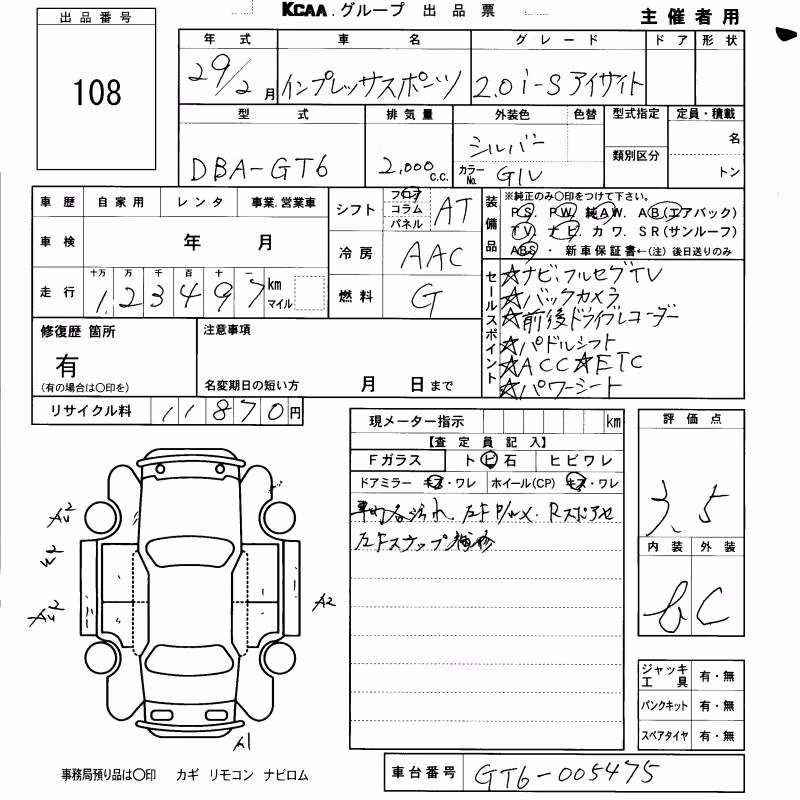 出品番号
108
KCAA.グループ 出品票
主催者用
年式 車名 グレード ドア 形状
29/2月 インプレッサスポーツ 2.0i-S アイサイト
型式 排気量 外装色 色替 型式指定 定員・積載
DBA-GT6 2,000c.c. シルバー 類別区分 名
カラーNo. G1U トン
車歴 自家用 レンタ 事業.営業車
車検 年 月
走行 十万 万 千 百 十 一 km マイル
123497
シフト フロア コラム パネル AT
冷房 AAC
燃料 G
装備品
※純正のみ〇印をつけて下さい。
PS. PW. 純AW. AB(エアバック)
TV. ナビ. カワ. SR(サンルーフ)
ABS・新車保証書←(注)後日送りのみ
セールスポイント
☆ナビ、フルセグTV
☆バックカメラ
☆前後ドライブレコーダー
☆パドルシフト
☆ACC☆ETC
☆パワーシート
修復歴 箇所
有
(有の場合は〇印を)
注意事項
名変期日の短い方 月 日まで
リサイクル料 11870円
現メーター指示 km
【査定員記入】
Fガラス トビ石 ヒビワレ
ドアミラー キズ・ワレ ホイール(CP) キズ・ワレ
左F
左Fステップ補修
評価点
3.5
内装 外装
C
ジャッキ工具 有・無
パンクキット 有・無
スペアタイヤ 有・無
A2
A1
事務局預り品は〇印 カギ リモコン ナビロム
車台番号 GT6-005475